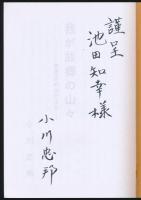 謹呈
池田知幸様
小川忠邦